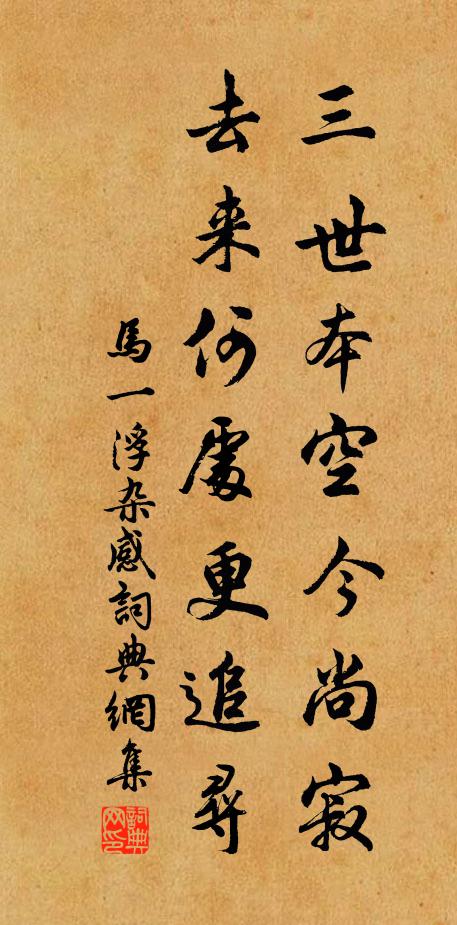 三世本空今尚寂
去来何處更追尋
馬一浮杂感詞典網集
詞典网印